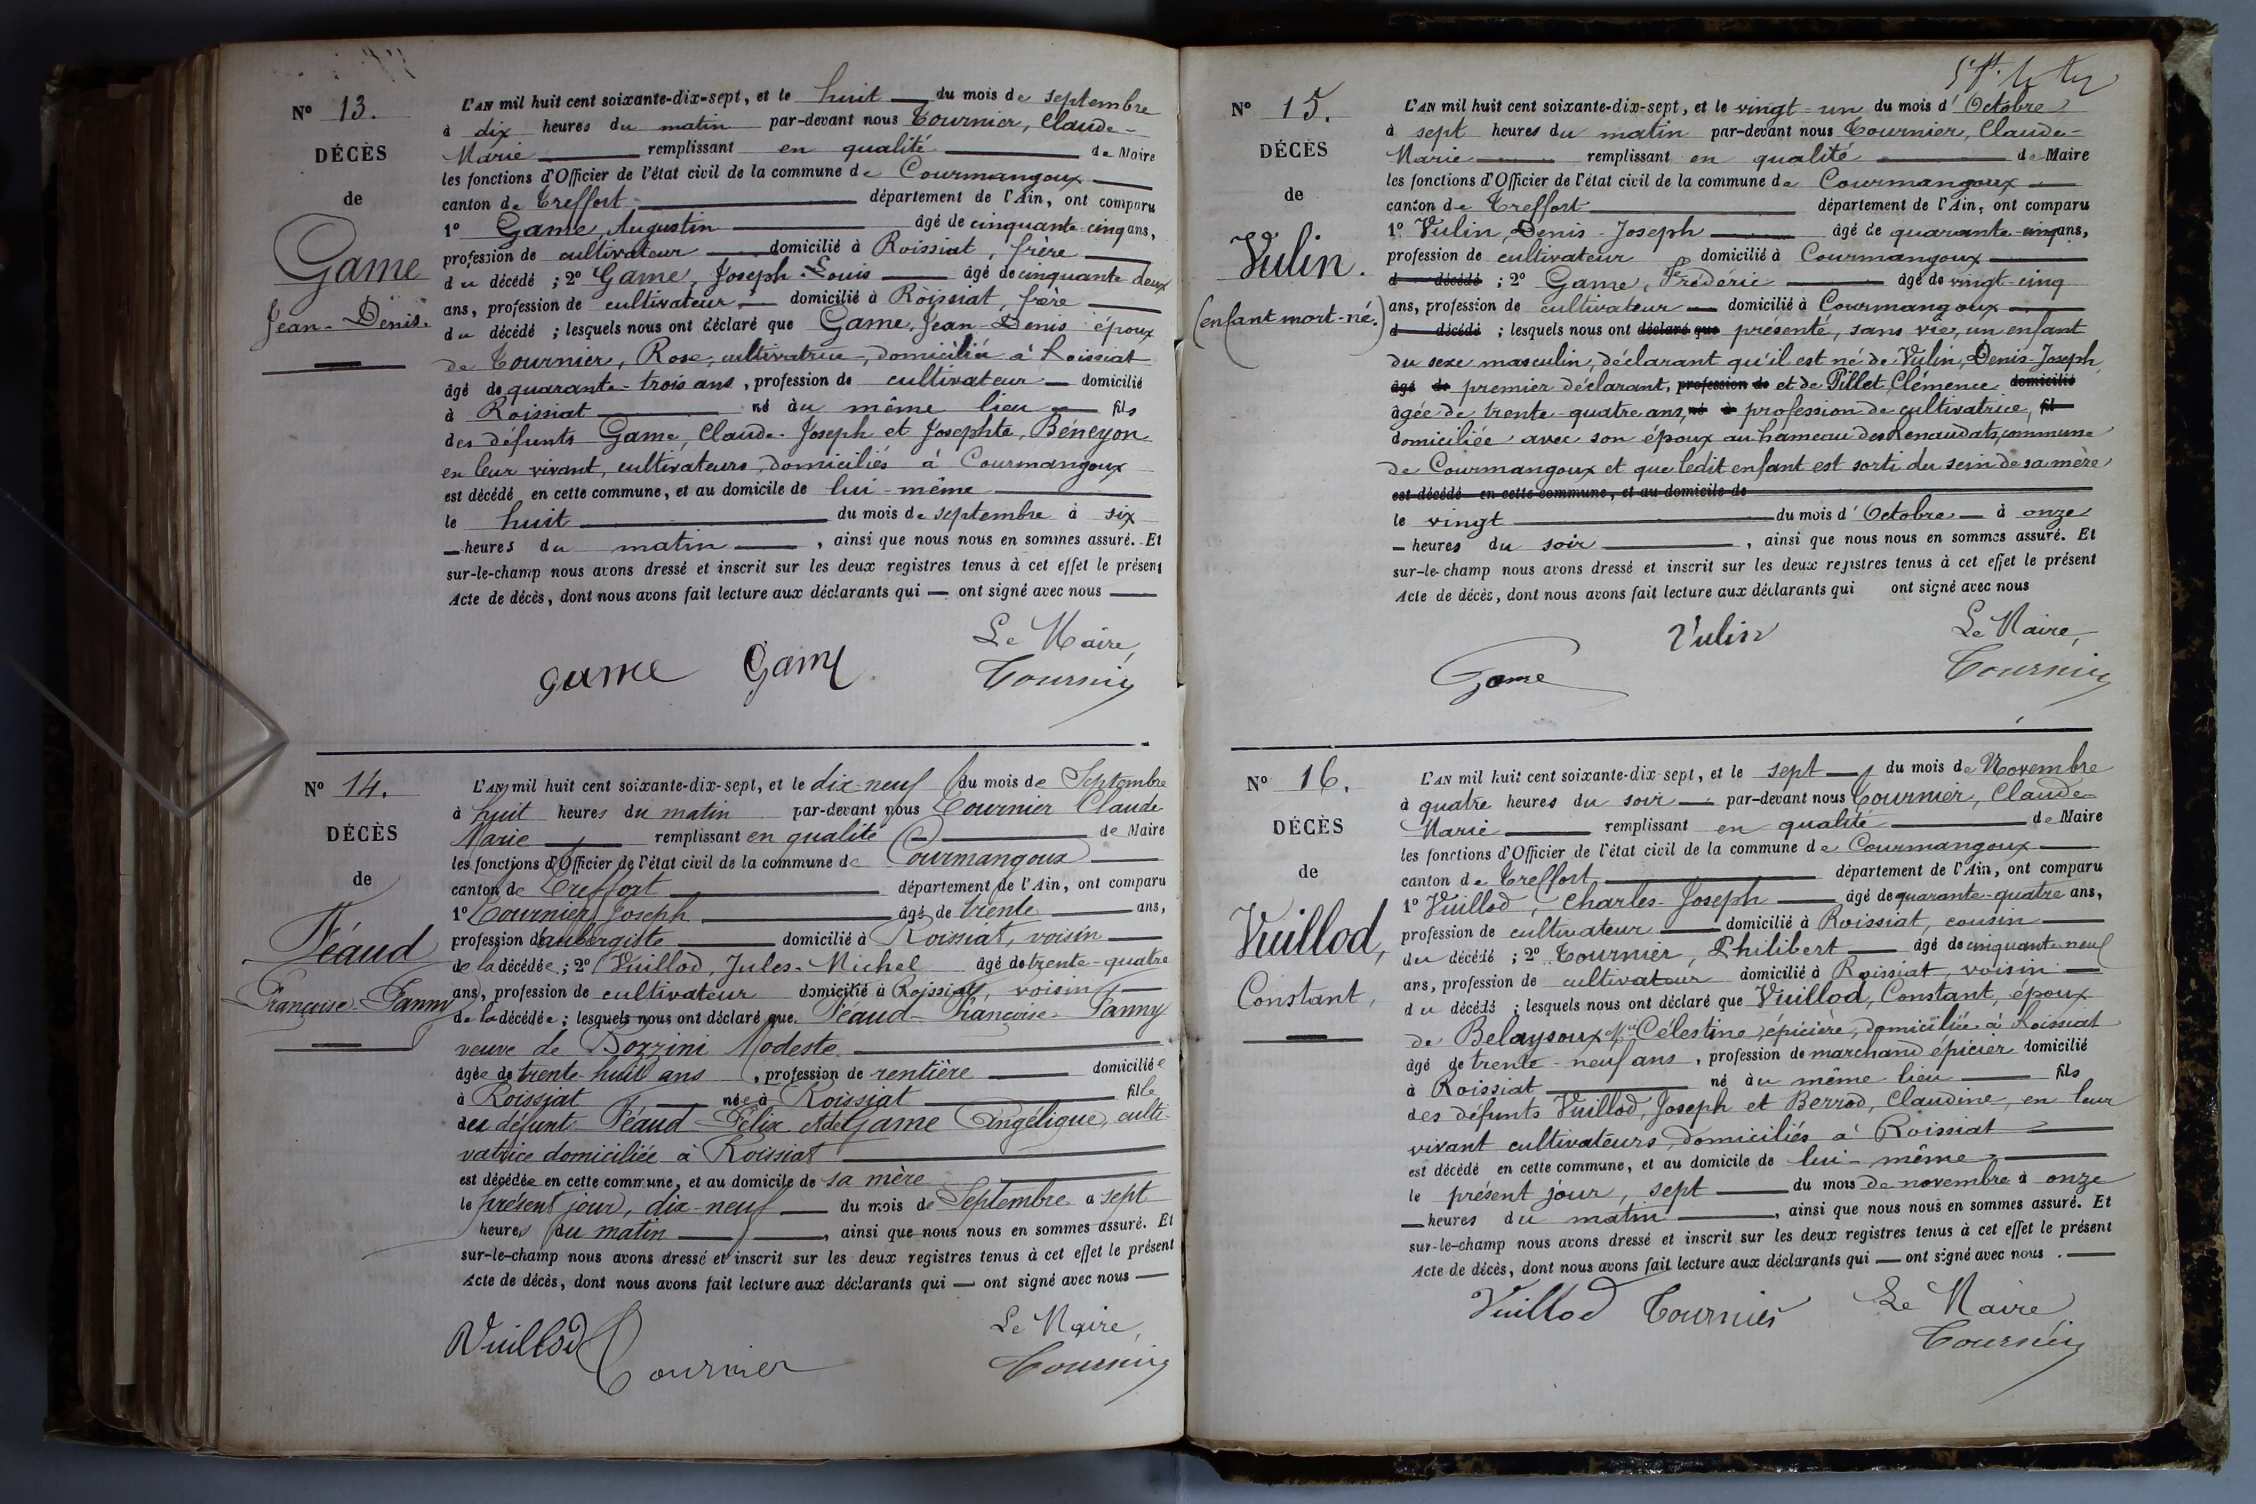 N° 13.
DÉCÈS
de
Game
Jean-Denis.
L'AN mil huit cent soixante-dix-sept, et le huit du mois de septembre
à dix heures du matin par-devant nous Tournier, Claude-
Marie remplissant en qualité de Maire
les fonctions d'Officier de l'état civil de la commune de Courmangoux
canton de Treffort département de l'Ain, ont comparu
1° Game, Augustin âgé de cinquante-cinq ans,
profession de cultivateur domicilié à Roissiat, frère
du décédé ; 2° Game, Joseph-Louis âgé de cinquante deux
ans, profession de cultivateur domicilié à Roissiat, frère
du décédé ; lesquels nous ont déclaré que Game, Jean-Denis époux
de Tournier, Rose, cultivatrice, domiciliée à Roissiat
âgé de quarante-trois ans, profession de cultivateur domicilié
à Roissiat né au même lieu fils
des défunts Game, Claude-Joseph et Josephte, Béneyon
en leur vivant, cultivateurs, domiciliés à Courmangoux
est décédé en cette commune, et au domicile de lui-même
le huit du mois de septembre à six
heures du matin, ainsi que nous nous en sommes assuré. Et
sur-le-champ nous avons dressé et inscrit sur les deux registres tenus à cet effet le présent
Acte de décès, dont nous avons fait lecture aux déclarants qui ont signé avec nous
Le Maire,
game Game Tournier
N° 14.
DÉCÈS
de
Féaud
Françoise-Fanny
L'AN mil huit cent soixante-dix-sept, et le dix-neuf du mois de Septembre
à huit heures du matin par-devant nous Tournier Claude
Marie remplissant en qualité de Maire
les fonctions d'Officier de l'état civil de la commune de Courmangoux
canton de Treffort département de l'Ain, ont comparu
1° Tournier Joseph âgé de trente ans,
profession d'aubergiste domicilié à Roissiat, voisin
de la décédée ; 2° Vuillod, Jules-Michel âgé de trente-quatre
ans, profession de cultivateur domicilié à Roissiat, voisin
de la décédée ; lesquels nous ont déclaré que Féaud-Françoise-Fanny
veuve de Bozzini Modeste
âgée de trente-huit ans, profession de rentière domiciliée
à Roissiat née à Roissiat fille
de défunt Féaud Félix et de Game Angélique, culti-
vatrice domiciliée à Roissiat
est décédée en cette commune, et au domicile de sa mère
le présent jour, dix-neuf du mois de Septembre a sept
heures du matin, ainsi que nous nous en sommes assuré. Et
sur-le-champ nous avons dressé et inscrit sur les deux registres tenus à cet effet le présent
Acte de décès, dont nous avons fait lecture aux déclarants qui ont signé avec nous
Le Maire,
Vuillod Tournier Tournier
N° 15.
DÉCÈS
de
Vulin.
(enfant mort-né.)
L'AN mil huit cent soixante-dix-sept, et le vingt-un du mois d'Octobre
à sept heures du matin par-devant nous Tournier, Claude-
Marie remplissant en qualité de Maire
les fonctions d'Officier de l'état civil de la commune de Courmangoux
canton de Treffort département de l'Ain, ont comparu
1° Vulin, Denis-Joseph âgé de quarante-cinq ans,
profession de cultivateur domicilié à Courmangoux
d décédé ; 2° Game, Frédéric âgé de vingt-cinq
ans, profession de cultivateur domicilié à Courmangoux
d décédé ; lesquels nous ont déclaré que présenté, sans vie, un enfant
du sexe masculin, déclarant qu'il est né de Vulin, Denis-Joseph
âgé de premier déclarant, profession de et de Pillet, Clémence domicilié
âgée de trente-quatre ans, né à profession de cultivatrice, fil
domiciliée avec son époux au hameau des Renaudats, commune
de Courmangoux et que ledit enfant est sorti du sein de sa mère
est décédé en cette commune, et au domicile de
le vingt du mois d'Octobre à onze
heures du soir, ainsi que nous nous en sommes assuré. Et
sur-le-champ nous avons dressé et inscrit sur les deux registres tenus à cet effet le présent
Acte de décès, dont nous avons fait lecture aux déclarants qui ont signé avec nous
Vulin Le Maire,
Game Tournier
N° 16.
DÉCÈS
de
Vuillod,
Constant,
L'AN mil huit cent soixante-dix-sept, et le sept du mois de Novembre
à quatre heures du soir par-devant nous Tournier, Claude-
Marie remplissant en qualité de Maire
les fonctions d'Officier de l'état civil de la commune de Courmangoux
canton de Treffort département de l'Ain, ont comparu
1° Vuillod, Charles-Joseph âgé de quarante-quatre ans,
profession de cultivateur domicilié à Roissiat, cousin
du décédé ; 2° Tournier, Philibert âgé de cinquante-neuf
ans, profession de cultivateur domicilié à Roissiat, voisin
du décédé ; lesquels nous ont déclaré que Vuillod, Constant, époux
de Belaysoux Mie Célestine, épicière, domiciliée à Roissiat
âgé de trente-neuf ans, profession de marchand épicier domicilié
à Roissiat né au même lieu fils
des défunts Vuillod, Joseph et Berrod, Claudine, en leur
vivant cultivateurs, domiciliés à Roissiat
est décédé en cette commune, et au domicile de lui-même
le présent jour, sept du mois de novembre à onze
heures du matin, ainsi que nous nous en sommes assuré. Et
sur-le-champ nous avons dressé et inscrit sur les deux registres tenus à cet effet le présent
Acte de décès, dont nous avons fait lecture aux déclarants qui ont signé avec nous.
Vuillod Tournier Le Maire
Tournier